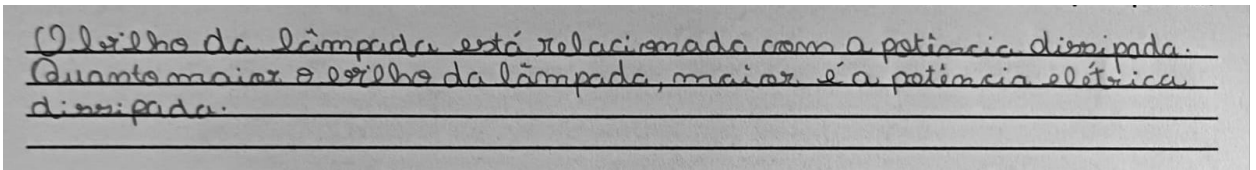 O brilho da lâmpada está relacionado com a potência dissipada.
Quanto maior o brilho da lâmpada, maior é a potência elétrica
dissipada.